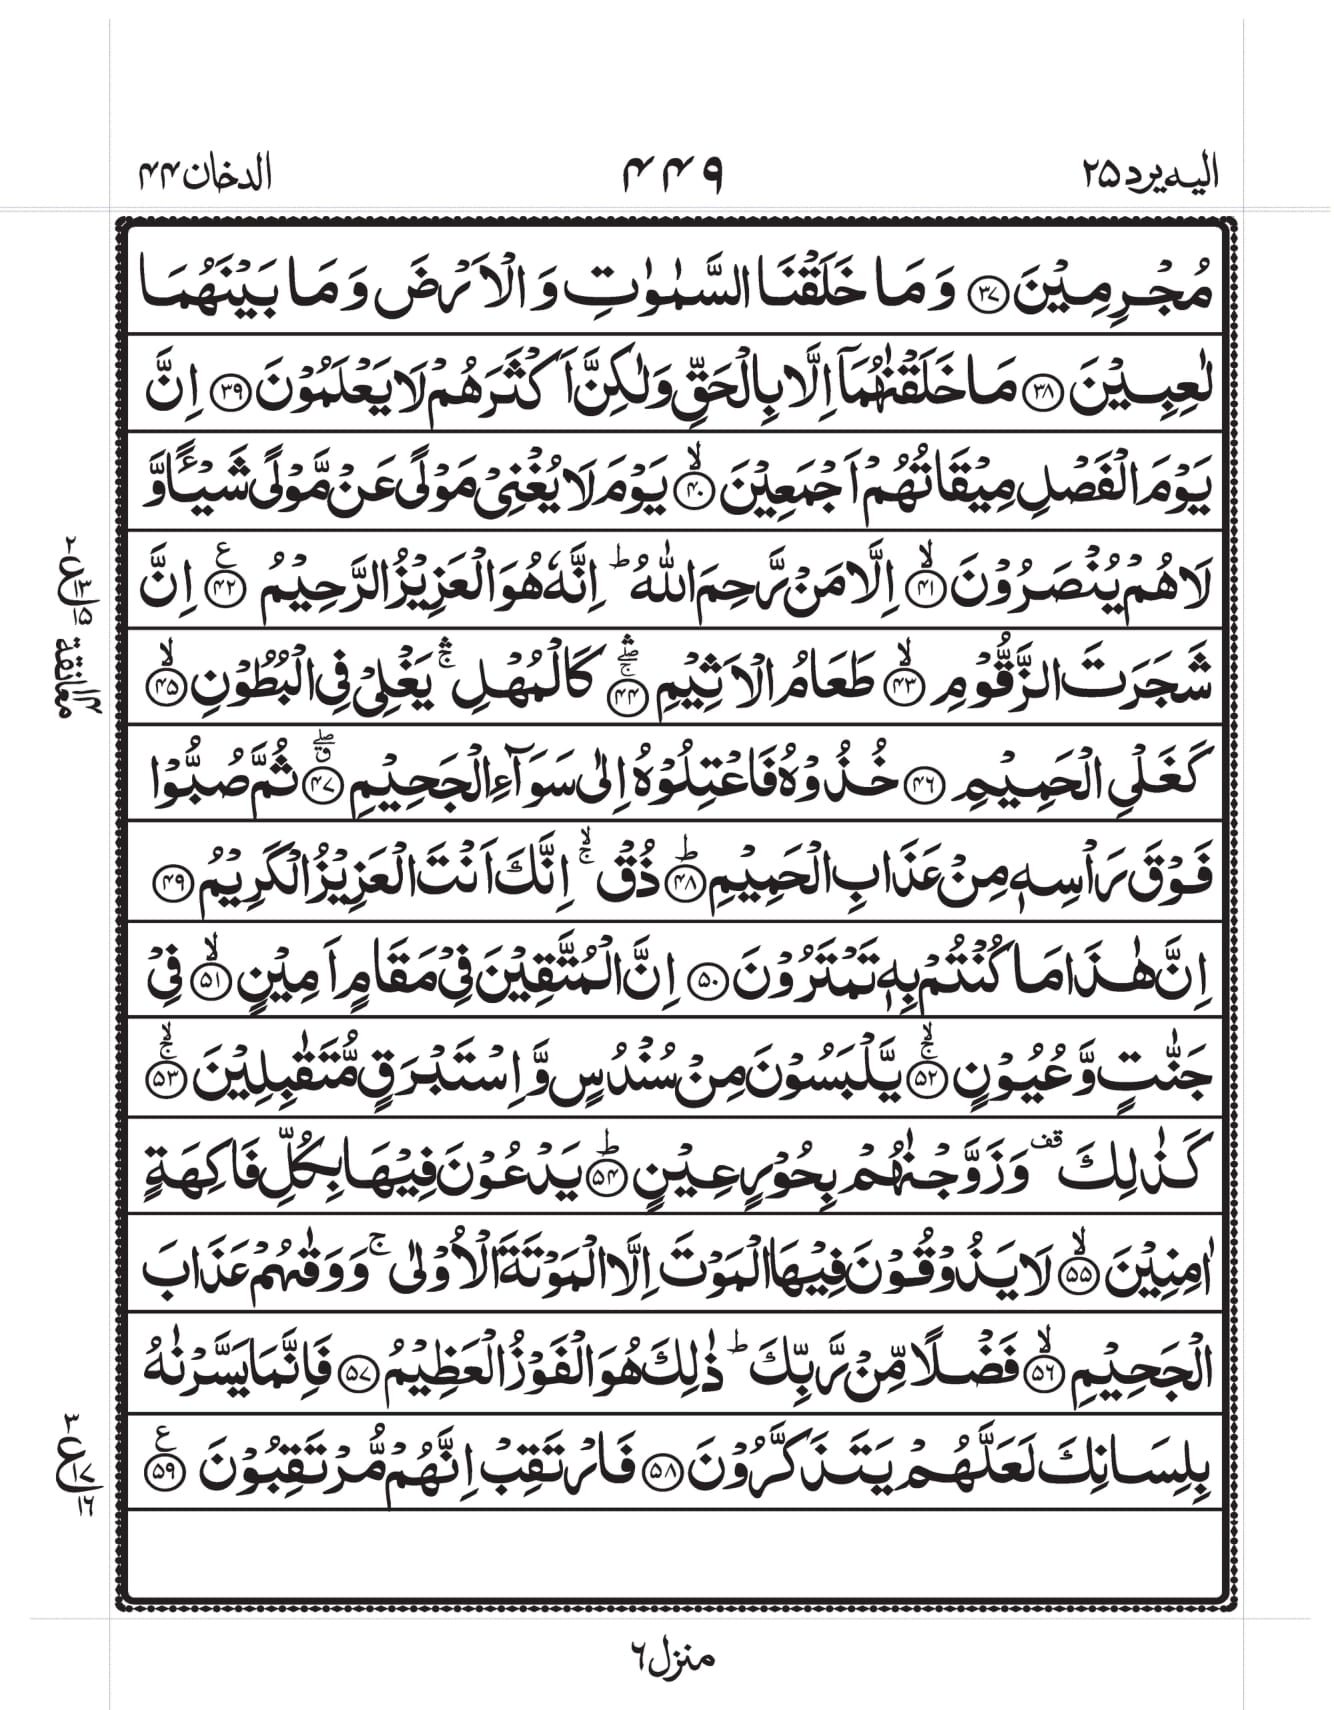 الیه یرد ۲۵
۴۴۹
الدخان ۴۴
مُجْرِمِیْنَ ۝۳۷ وَ مَا خَلَقْنَا السَّمٰوٰتِ وَ الْاَرْضَ وَ مَا بَیْنَهُمَا
لٰعِبِیْنَ ۝۳۸ مَا خَلَقْنٰهُمَاۤ اِلَّا بِالْحَقِّ وَ لٰكِنَّ اَكْثَرَهُمْ لَا یَعْلَمُوْنَ ۝۳۹ اِنَّ
یَوْمَ الْفَصْلِ مِیْقَاتُهُمْ اَجْمَعِیْنَۙ ۝۴۰ یَوْمَ لَا یُغْنِیْ مَوْلًى عَنْ مَّوْلًى شَیْــٴًـا وَّ
لَا هُمْ یُنْصَرُوْنَۙ ۝۴۱ اِلَّا مَنْ رَّحِمَ اللّٰهُؕ اِنَّهٗ هُوَ الْعَزِیْزُ الرَّحِیْمُ ۝۴۲ ع اِنَّ
شَجَرَتَ الزَّقُّوْمِۙ ۝۴۳ طَعَامُ الْاَثِیْمِ ۛۖۚ ۝۴۴ كَالْمُهْلِ ۛۚ یَغْلِیْ فِی الْبُطُوْنِۙ ۝۴۵
كَغَلْیِ الْحَمِیْمِ ۝۴۶ خُذُوْهُ فَاعْتِلُوْهُ اِلٰى سَوَآءِ الْجَحِیْمِ ۗۖ ۝۴۷ ثُمَّ صُبُّوْا
فَوْقَ رَاْسِهٖ مِنْ عَذَابِ الْحَمِیْمِؕ ۝۴۸ ذُقْ ۙۚ اِنَّكَ اَنْتَ الْعَزِیْزُ الْكَرِیْمُ ۝۴۹
اِنَّ هٰذَا مَا كُنْتُمْ بِهٖ تَمْتَرُوْنَ ۝۵۰ اِنَّ الْمُتَّقِیْنَ فِیْ مَقَامٍ اَمِیْنٍۙ ۝۵۱ فِیْ
جَنّٰتٍ وَّ عُیُوْنٍ ۙۚ ۝۵۲ یَّلْبَسُوْنَ مِنْ سُنْدُسٍ وَّ اِسْتَبْرَقٍ مُّتَقٰبِلِیْنَ ۙۚ ۝۵۳
كَذٰلِكَ قف وَ زَوَّجْنٰهُمْ بِحُوْرٍ عِیْنٍؕ ۝۵۴ یَدْعُوْنَ فِیْهَا بِكُلِّ فَاكِهَةٍ
اٰمِنِیْنَۙ ۝۵۵ لَا یَذُوْقُوْنَ فِیْهَا الْمَوْتَ اِلَّا الْمَوْتَةَ الْاُوْلٰىۚ وَ وَقٰىهُمْ عَذَابَ
الْجَحِیْمِۙ ۝۵۶ فَضْلًا مِّنْ رَّبِّكَؕ ذٰلِكَ هُوَ الْفَوْزُ الْعَظِیْمُ ۝۵۷ فَاِنَّمَا یَسَّرْنٰهُ
بِلِسَانِكَ لَعَلَّهُمْ یَتَذَكَّرُوْنَ ۝۵۸ فَارْتَقِبْ اِنَّهُمْ مُّرْتَقِبُوْنَ ۝۵۹ ع
۲
ع ۱۳
۱۵
معانقة ۱۲
۳
ع ۱۷
۱۶
منزل ۶